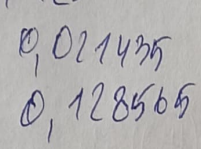 0,021435
0,128565